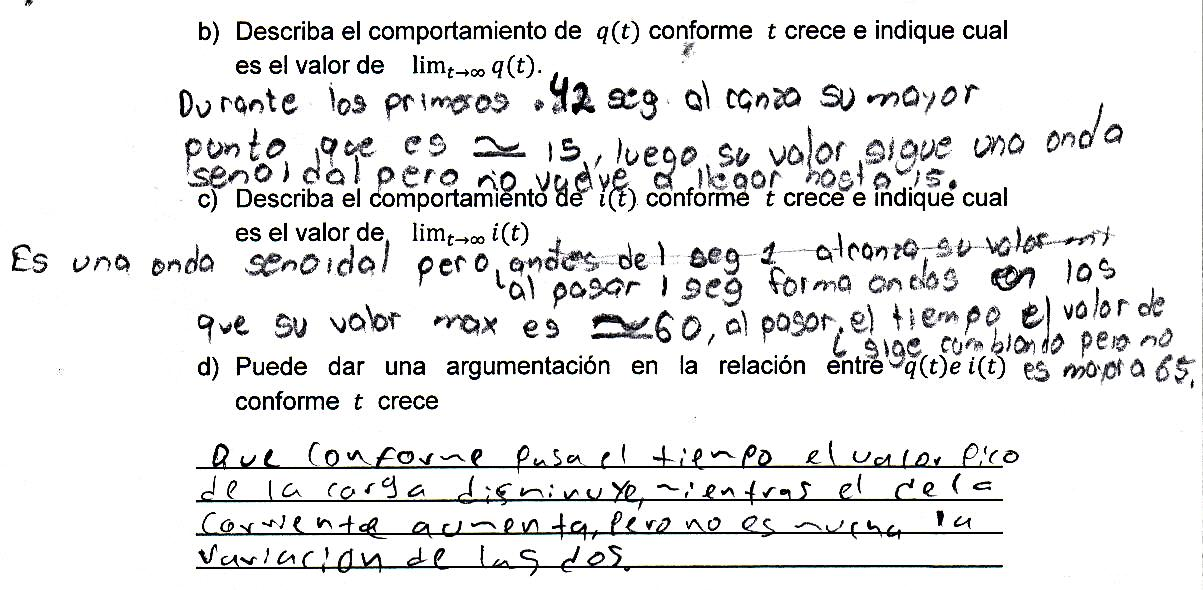 b) Describa el comportamiento de q(t) conforme t crece e indique cual
es el valor de lim t→∞ q(t).
Durante los primeros .42 seg. alcanza su mayor
punto que es ≃ 15, luego su valor sigue una onda
senoidal pero no vuelve a llegar hasta 15.
c) Describa el comportamiento de i(t) conforme t crece e indique cual
es el valor de lim t→∞ i(t)
Es una onda senoidal pero, antes del seg 1 alcanza su valor
al pasar 1 seg forma ondas en las
que su valor max es ≃60, al pasar el tiempo el valor de
i sige cambiando pero no
d) Puede dar una argumentación en la relación entre q(t)e i(t) es mayor a 65.
conforme t crece
Que conforme pasa el tiempo el valor pico
de la carga disminuye, mientras el de la
corriente aumenta, pero no es mucha la
variación de las dos.